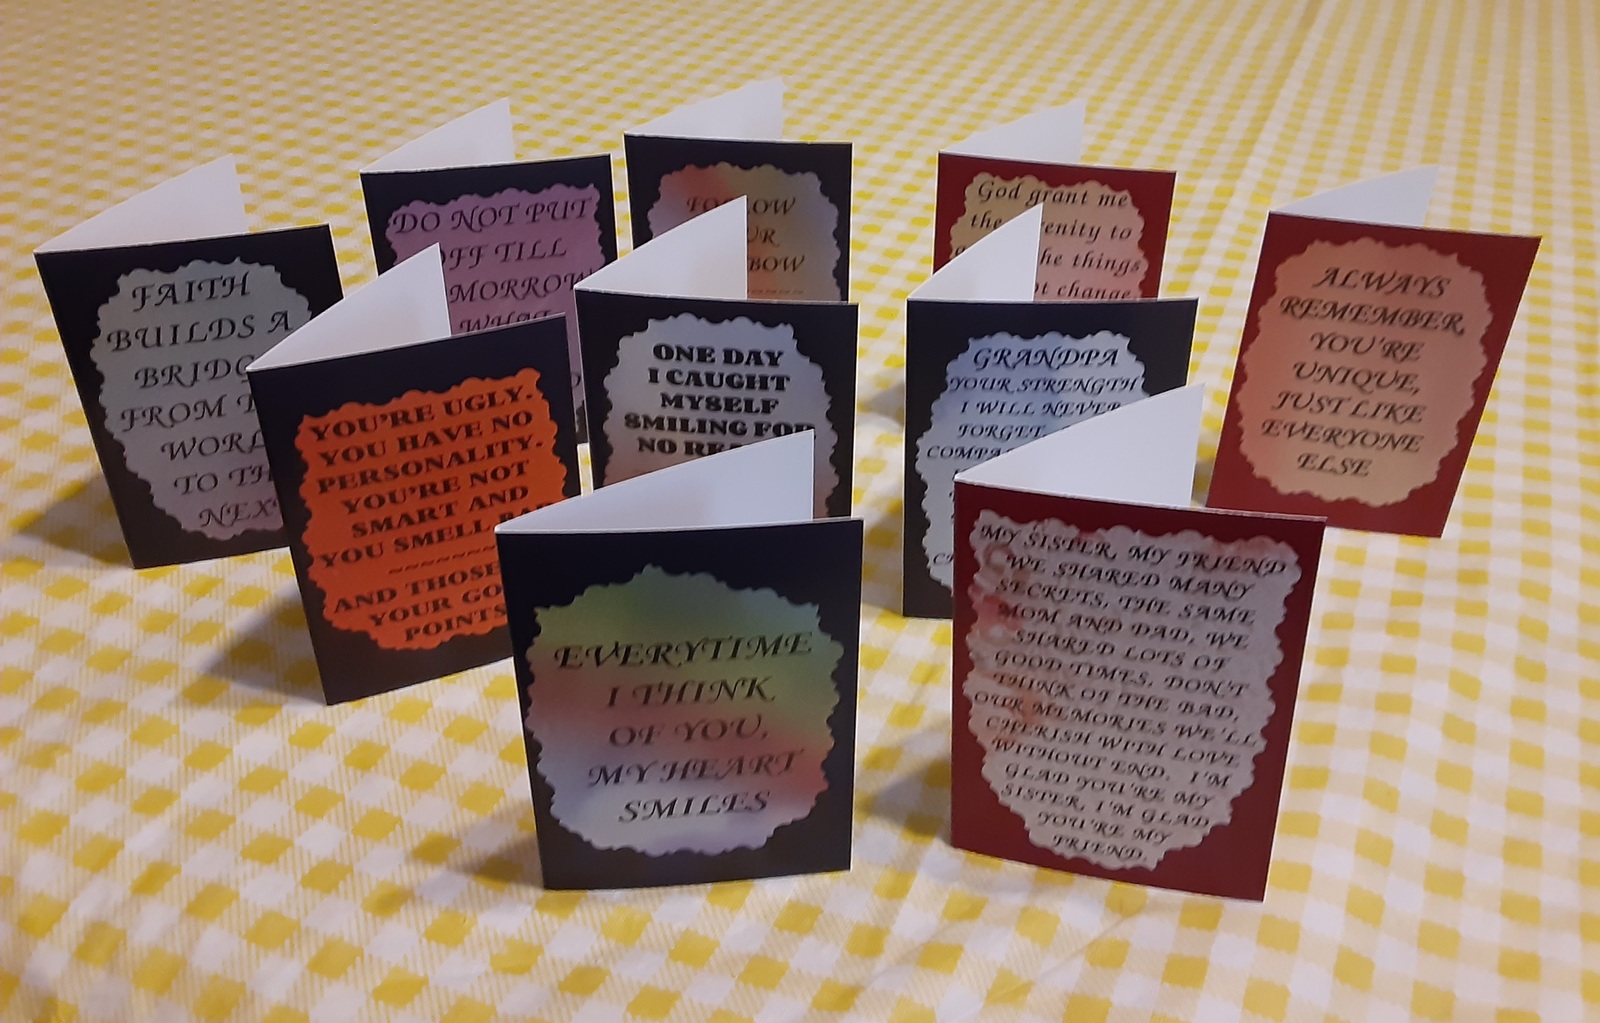 FAITH
BUILDS A
FROM
TO
DO NOT PUT
OFF TILL
WHAT
God grant me
the to
the things
change
ALWAYS
REMEMBER,
YOU'RE
UNIQUE,
JUST LIKE
EVERYONE
ELSE
YOU'RE UGLY.
YOU HAVE NO
PERSONALITY.
YOU'RE NOT
SMART AND
YOU SMELL
~~~~~~
AND THOSE
YOUR
POINTS
ONE DAY
I CAUGHT
MYSELF
SMILING FOR
NO
GRANDPA
YOUR STRENGTH
I WILL NEVER
FORGET
EVERYTIME
I THINK
OF YOU,
MY HEART
SMILES
MY SISTER, MY FRIEND
WE SHARED MANY
SECRETS, THE SAME
MOM AND DAD, WE
SHARED LOTS OF
GOOD TIMES, DON'T
THINK OF THE BAD,
OUR MEMORIES WE'LL
CHERISH WITH LOVE
WITHOUT END. I'M
GLAD YOU'RE MY
SISTER, I'M GLAD
YOU'RE MY
FRIEND.